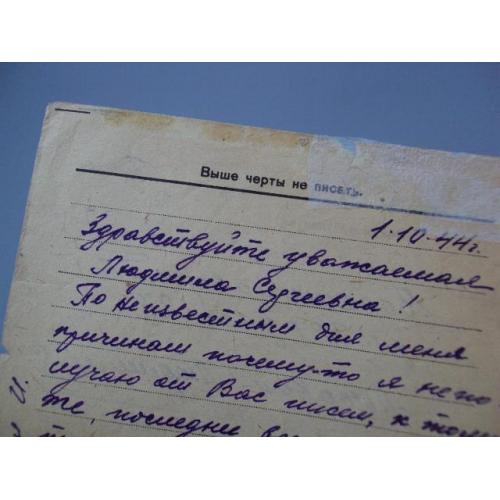 Выше черты не писать.
1.10.44г.
Здравствуйте уважаемая
Людмила Сергеевна!
По неизвестным для меня
причинам почему-то я непо
лучаю от Вас писем, к тому
те, последние